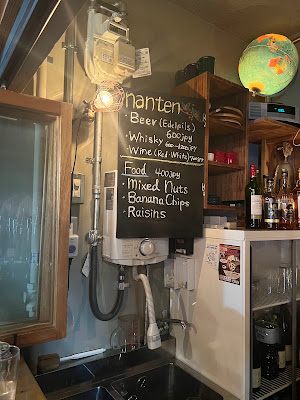 nanten
· Beer (Edelpils)
600jpy
· Whisky 600-1200jpy
· Wine (Red·White)
Food 400jpy
· Mixed Nuts
· Banana Chips
· Raisins